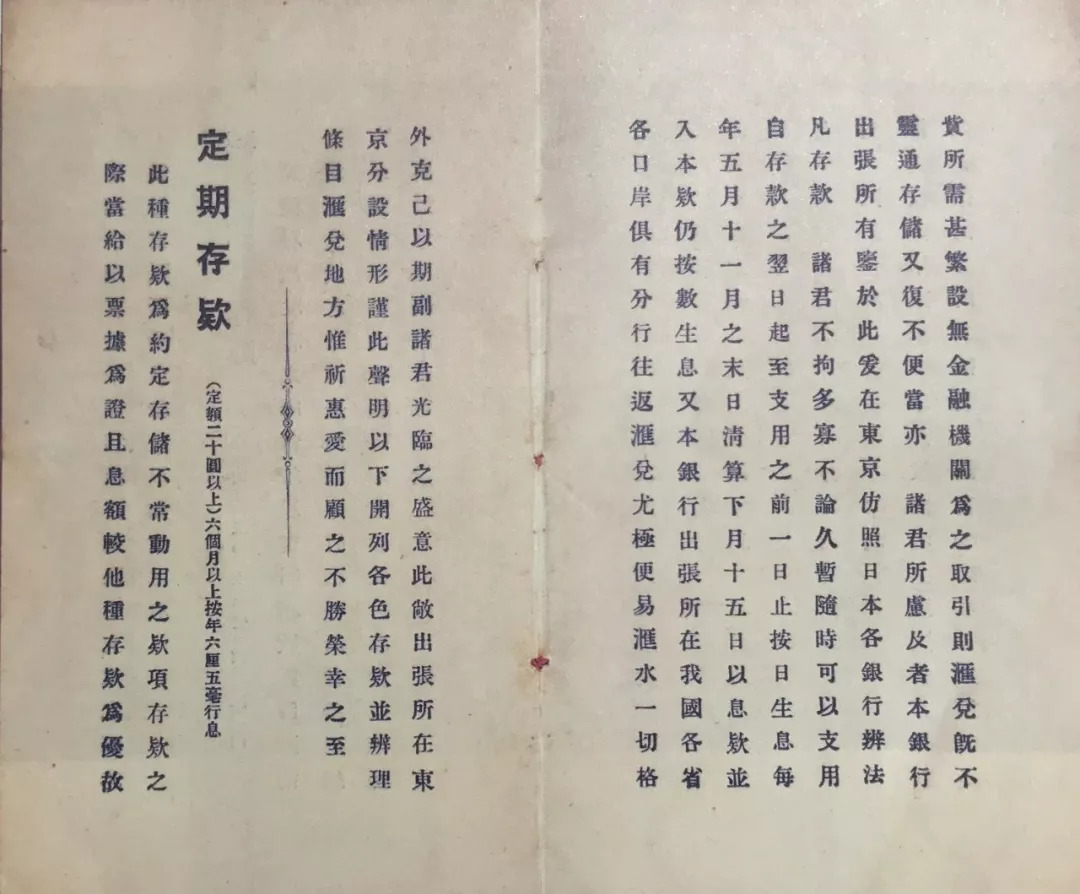 貲所需甚繁設無金融機關為之取引則滙兌旣不
靈通存儲又復不便當亦 諸君所慮及者本銀行
出張所有鑒於此爰在東京仿照日本各銀行辨法
凡存款 諸君不拘多寡不論久暫隨時可以支用
自存款之翌日起至支用之前一日止按日生息每
年五月十一月之末日淸算下月十五日以息欵並
入本欵仍按數生息又本銀行出張所在我國各省
各口岸俱有分行往返滙兌尤極便易滙水一切格
外克己以期副諸君光臨之盛意此敞出張所在東
京分設情形謹此聲明以下開列各色存欵並辨理
條目滙兌地方惟祈惠愛而顧之不勝榮幸之至
定期存欵 (定額二十圓以上)六個月以上按年六厘五毫行息
此種存欵爲約定存儲不常動用之欵項存欵之
際當給以票據爲證且息額較他種存欵爲優故